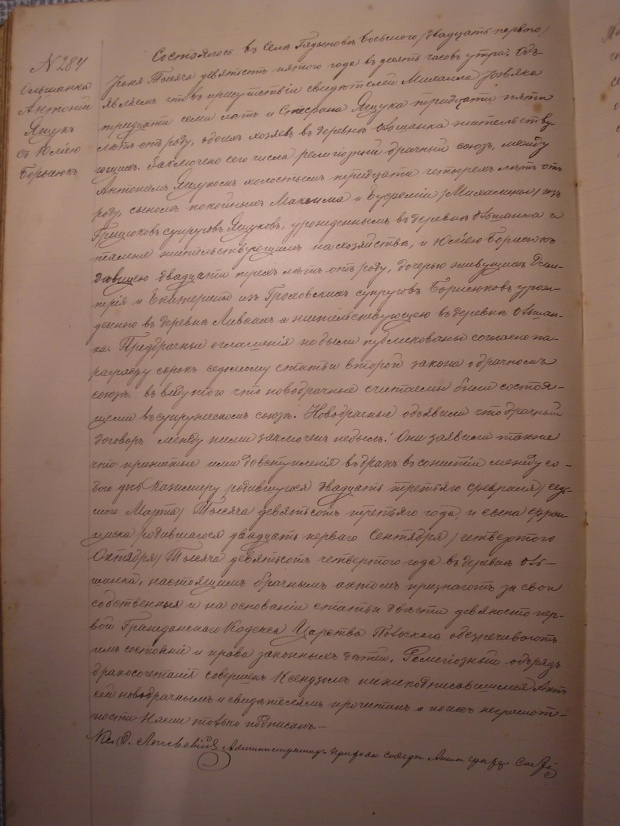 № 284
Ольшанка
Антоній
Ящук
съ Юліею
Борисюкъ
Состоялось въ селѣ восьмого /двадцать перваго/
Іюня тысяча девятьсотъ пятого года въ десять часовъ утра. Объ-
являемъ что въ присутствіи свидѣтелей Михаила
тридцати семи лѣтъ и Стефана Ящука тридцати пяти
лѣтъ отъ роду, обоихъ хозяевъ въ деревнѣ Ольшанка жительству-
ющихъ. Заключенъ сего числа религіозный брачный союзъ, между
Антоніемъ Ящукомъ холостымъ тридцати четырехъ лѣтъ отъ
роду, сыномъ покойныхъ Максима и Евфеміи /Михалины/ изъ
Грицюковъ супруговъ Ящуковъ, урожденнымъ въ деревнѣ Ольшанка и
тамже жительствующимъ на хозяйствѣ, и Юліею Борисюкъ
дѣвицею двадцати трехъ лѣтъ отъ роду, дочерью живущихъ
и Екатерины изъ Гроховскихъ супруговъ Борисюковъ урож-
денною въ деревнѣ и жительствующею въ деревнѣ Ольшан-
ка. Предбрачные оглашенія не были публикованы согласно
разряду сорокъ седьмому статьи второй закона о брачномъ
союзѣ въ виду того что новобрачные считаемы были состоя-
щими въ супружескомъ союзѣ. Новобрачные объявили что брачный
договоръ между ними заключенъ небылъ. Они заявили также
что прижитые ими до вступленія въ бракъ въ сожитіи между со-
бою дочь Казимиру родившуюся двадцать третьяго февраля /вось-
мого Марта/ тысяча девятьсотъ третьяго года, и сына Фран-
циска родившагося двадцать перваго Сентября /четвертого
Октября/ тысяча девятьсотъ четвертого года въ деревнѣ Оль-
шанка, настоящимъ брачнымъ актомъ признаютъ за свои
собственныя и на основаніи статьи двѣсти девяносто пер-
вой Гражданскаго Кодекса Царства Польскаго обезпечиваютъ
имъ состояніе и права законныхъ дѣтей. Религіозный обрядъ
бракосочетанія совершенъ Ксендзомъ нижеподписавшимся. Актъ
сей новобрачнымъ и свидѣтелямъ прочитанъ а по ихъ неграмот-
ности Нами только подписанъ.
Кс.